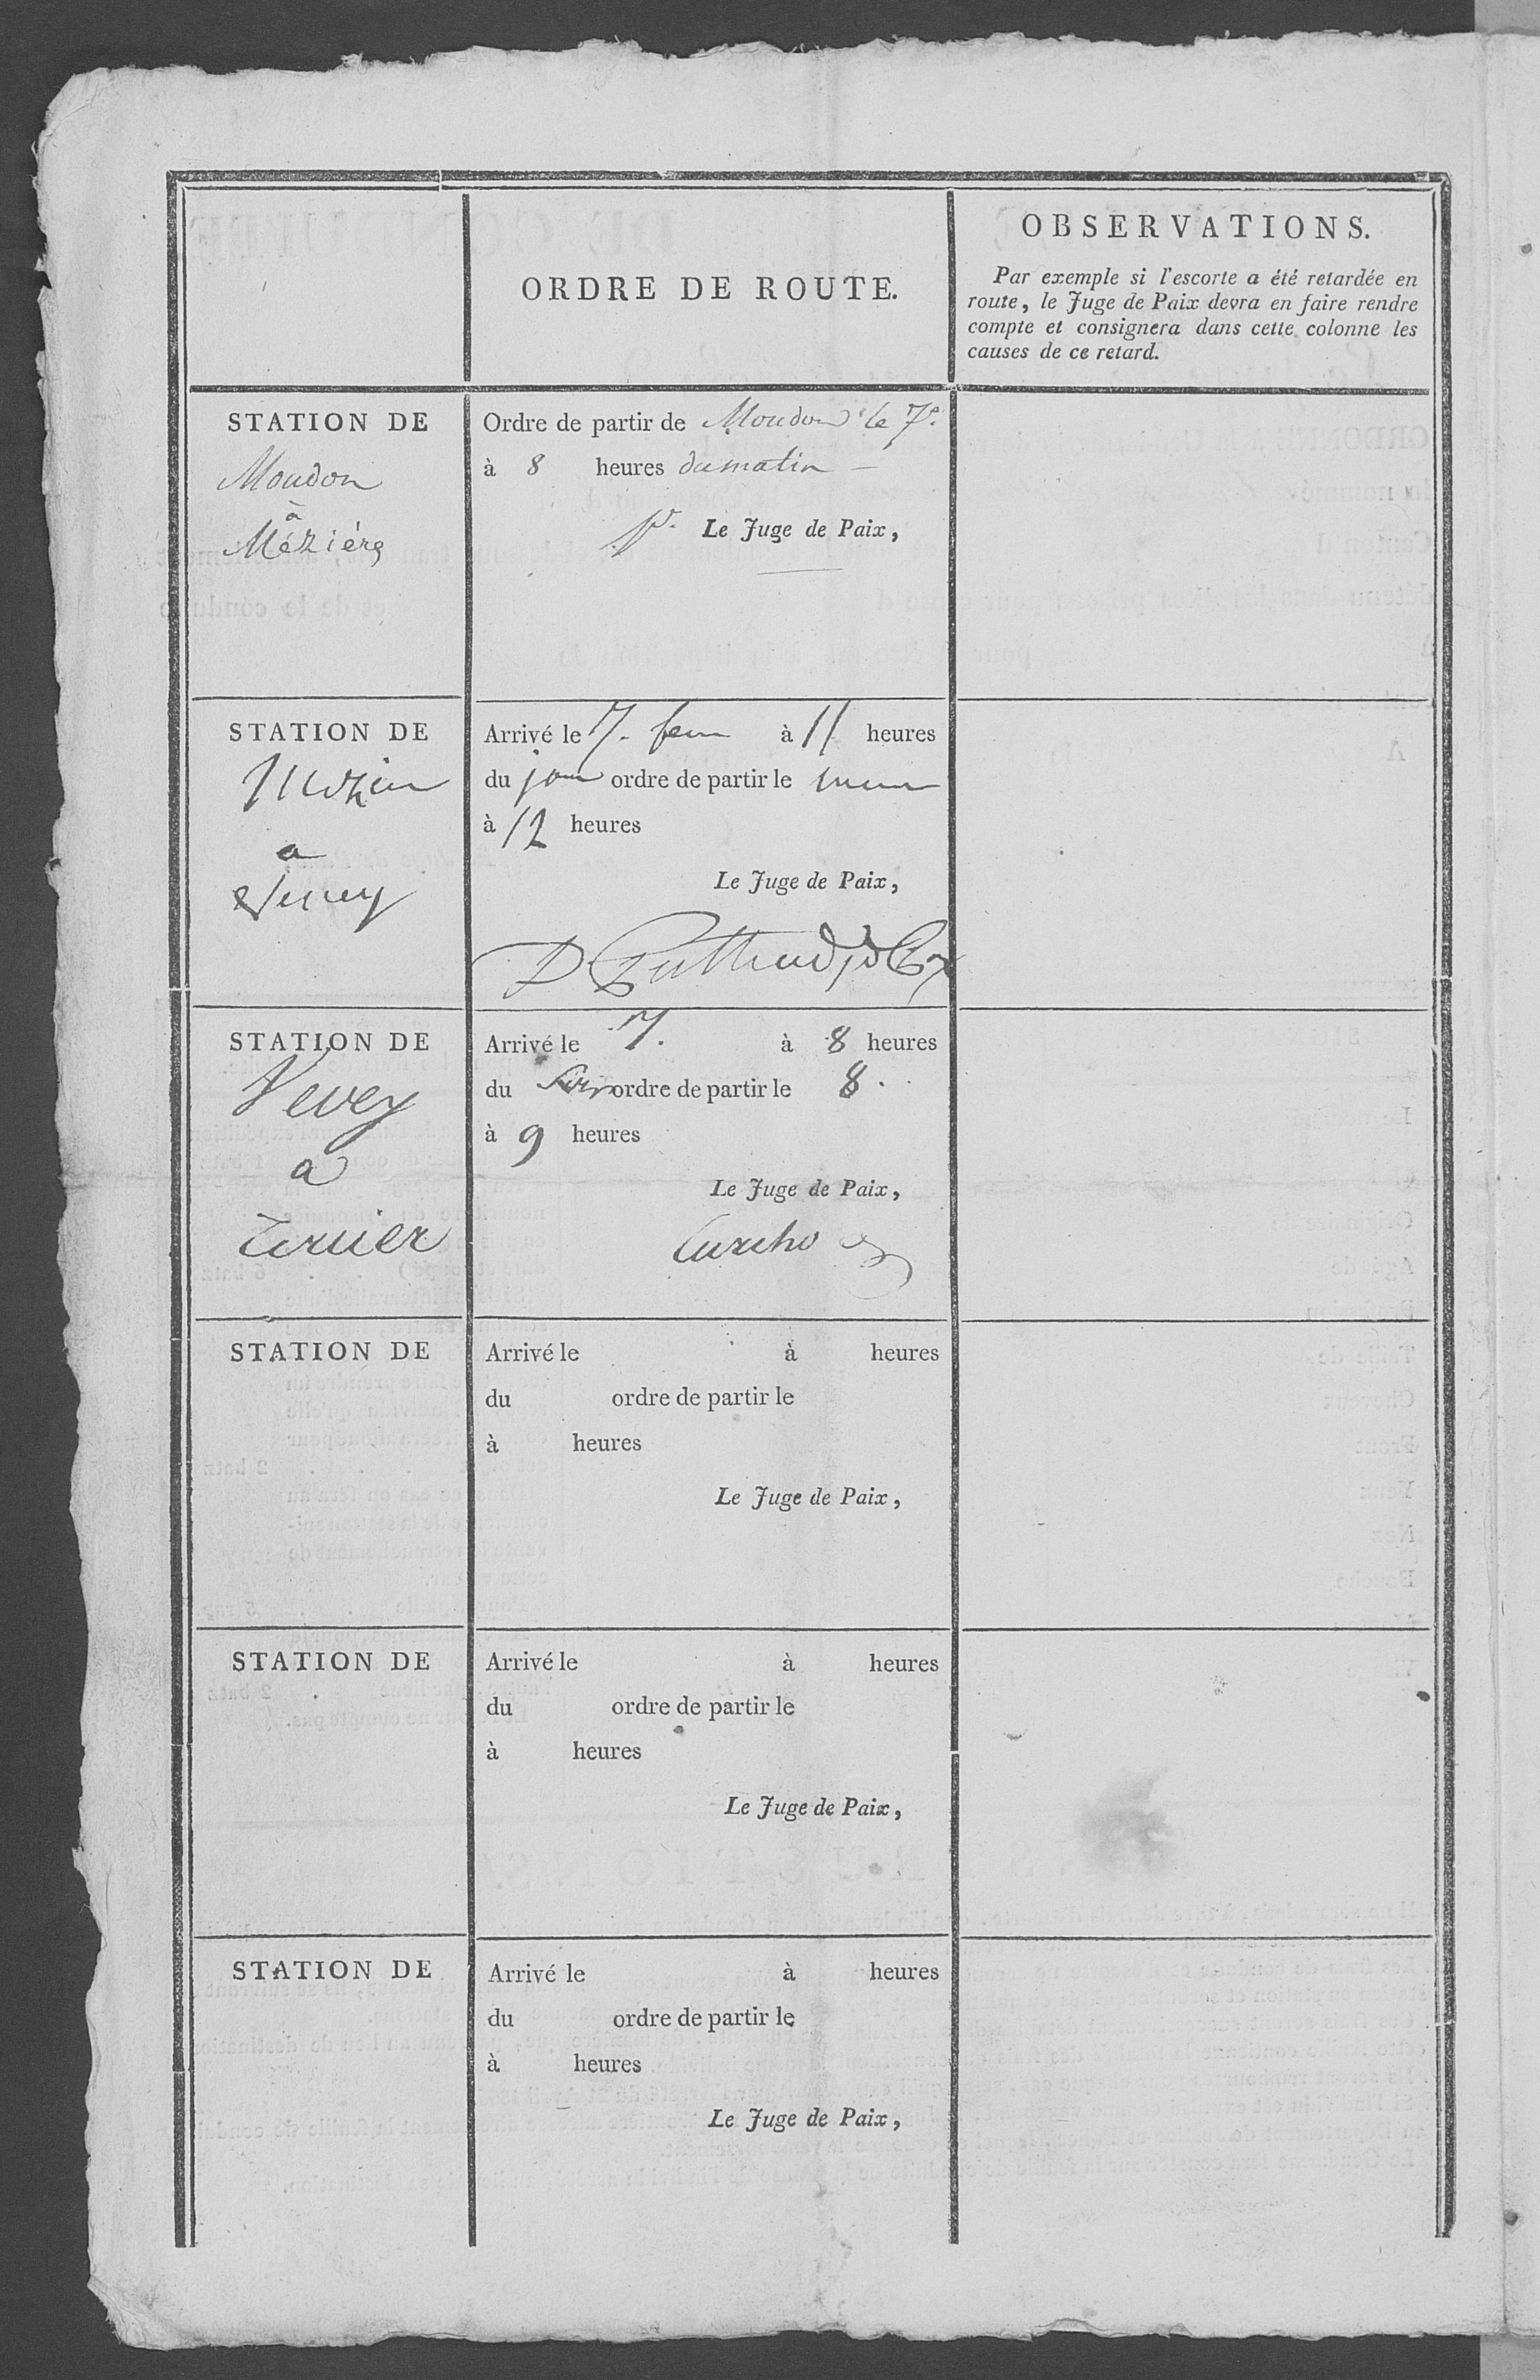 ORDRE DE ROUTE.
OBSERVATIONS.
Par exemple si l'escorte a été retardée en
route, le Juge de Paix devra en faire rendre
compte et consignera dans cette colonne les
causes de ce retard.
STATION DE
Moudon
à
Mézière
Ordre de partir de Moudon le 7e.
à 8 heures du matin —
pr. Le Juge de Paix,
STATION DE
a
Vevey
Arrivé le 7. à 11 heures
du jour ordre de partir le
à 12 heures
Le Juge de Paix,
STATION DE
Vevey
a
Arrivé le 7. à 8 heures
du Soir ordre de partir le 8.
à 9 heures
Le Juge de Paix,
STATION DE
Arrivé le à heures
du ordre de partir le
à heures
Le Juge de Paix,
STATION DE
Arrivé le à heures
du ordre de partir le
à heures
Le Juge de Paix,
STATION DE
Arrivé le à heures
du ordre de partir le
à heures
Le Juge de Paix,